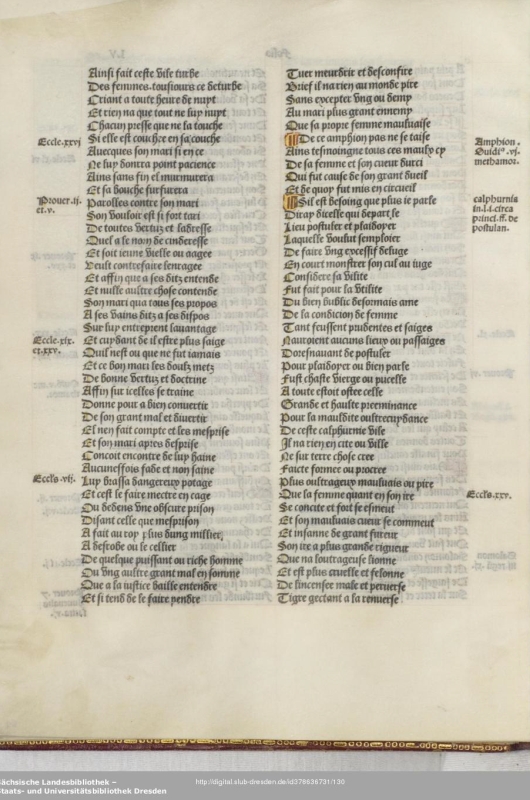 Ainsi fait ceste vile turbe
Des femmes tousiours ce desturbe
Criant a toute heure de nuyt
Et rien na que tout ne luy nuyt
Chacun presse que ne la touche
Eccle.xxvj
Si elle est couchee en sa couche
Auecques son mari si en ce
Ne luy donra point pacience
Ains sans fin el murmurera
Et sa bouche surfurera
Prouer.ij.
et.v.
Parolles contre son mari
Son vouloir est si fort tari
De toutes vertuz et ladresse
Quel a le nom de cinderesse
Et soit ieune vielle ou aagee
Veult contrefaire lenragee
Et affin que a ses ditz entende
Et nulle aultre chose contende
Son mari qua tous ses propos
A ses vains ditz a ses dispos
Sur luy entreprent lauantage
Eccle.xix.
et.xxv.
Et cuydant de il estre plus saige
Quil nest ou que ne fut iamais
Et ce bon mari les doulx metz
De bonne vertuz et doctrine
Affin sur icelles se traine
Donne pour a bien conuertir
De son grant mal et diuertir
El nen fait compte et les mesprise
Et son mari apres desprise
Concoit encontre de luy haine
Aucuneffois fade et non saine
Eccles.vij.
Luy brassa dangereux potage
Et cest le faire mectre en cage
Ou dedens vne obscure prison
Disant celle que mesprison
A fait au roy plus dung millier,
A desrobe ou le cellier
De quelque puissant ou riche homme
Ou vng aultre grant mal en somme
Que a la iustice baille entendre
Et si tend de le faire pendre
Tuer meurdrir et desconfire
Brief il na rien au monde pire
Sans excepter vng ou demy
Au mari plus grant ennemy
Que sa propre femme mauluaise
Amphion.
Ouidi⁹.vj.
methamor.
De ce amphion pas ne se taise
Ains tesmoingne tous ces maulx cy
De sa femme et son cueur durci
Qui fut cause de son grant dueil
Et de quoy fut mis en circueil
calphurnia
in.l.i.circa
princi.ff.de
postulan.
Sil est besoing que plus ie parle
Diray dicelle qui depart le
Lieu postuler et plaidoyer
Laquelle voulut semploier
De faire vng excessif deluge
En court monstrer son cul au iuge
Considere sa vilite
Fut fait pour la vtilite
Du bien public desormais ame
De la condicion de femme
Tant feussent prudentes et saiges
Nauroient aucuns lieux ou passaiges
Doresnauant de postuler
Pour plaidoyer ou bien parler
Fust chaste vierge ou pucelle
A toute estoit ostee celle
Grande et haulte preeminance
Pour la mauldite oultrecuydance
De ceste calphurnie vile
Il na rien en cite ou ville
Ne sur terre chose cree
Faicte formee ou procree
Plus oultrageux mauluais ou pire
Eccles.xxv.
Que la femme quant en son ire
Se concite et fort se esmeut
Et son mauluais cueur se commeut
Et insanne de grant fureur
Son ire a plus grande rigueur
Que na loutrageuse lionne
Et est plus cruelle et felonne
De lincensee male et peruerse
Tigre gectant a la renuerse
Sächsische Landesbibliothek –
Staats- und Universitätsbibliothek Dresden
http://digital.slub-dresden.de/id378636731/130